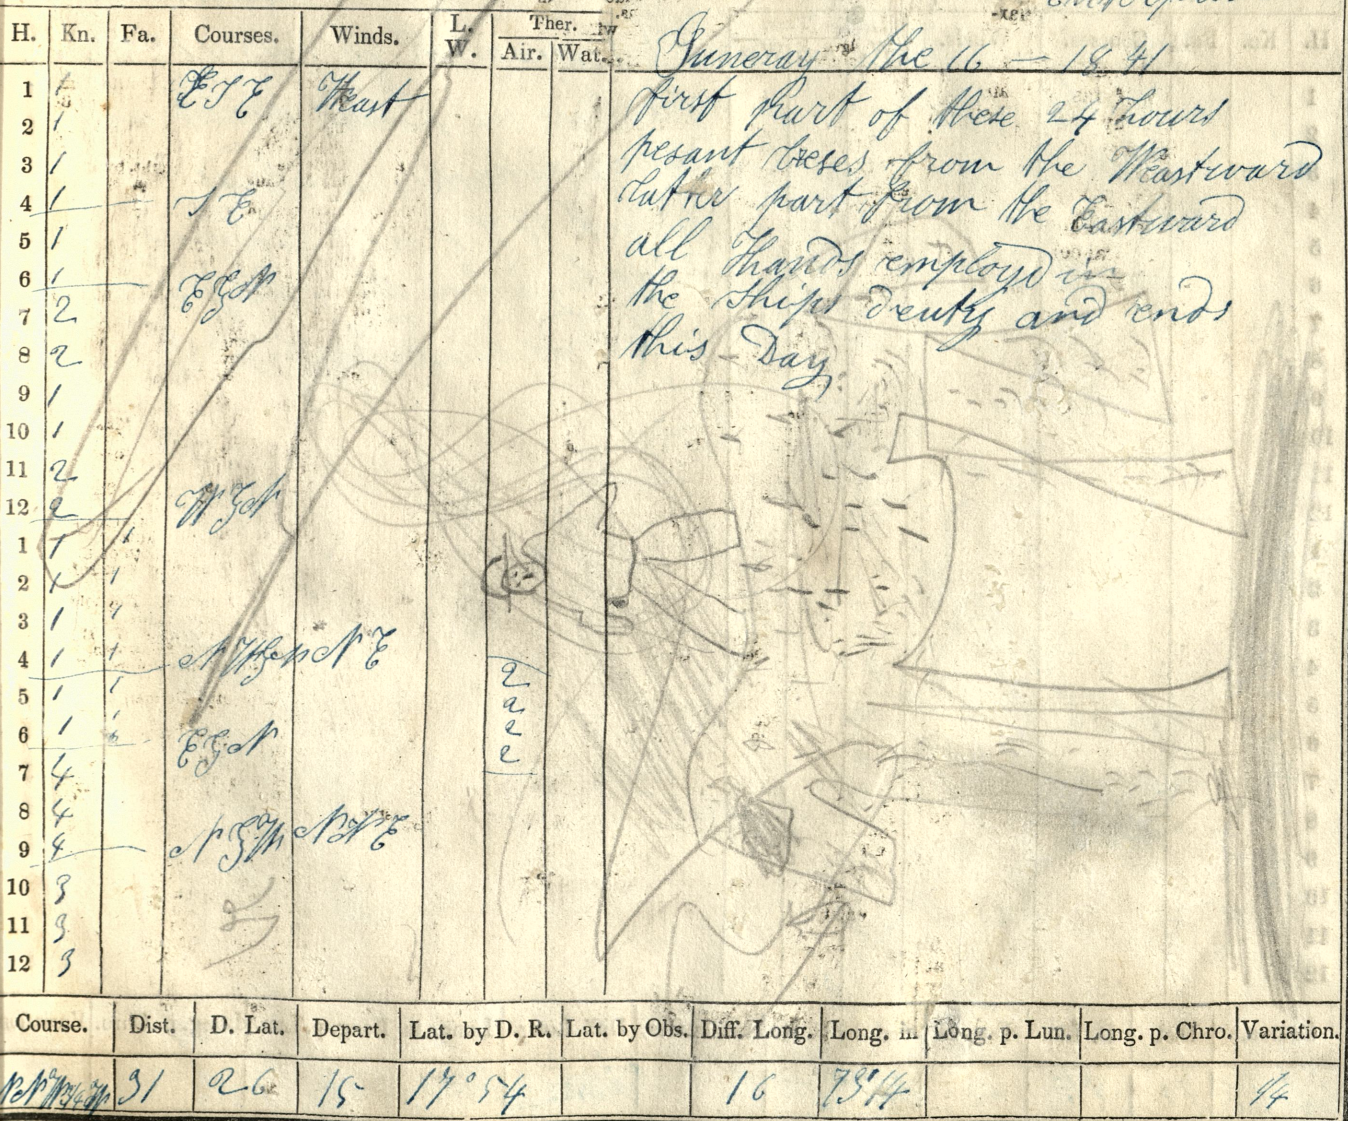 H. Kn. Fa. Courses. Winds. L. W. Ther. Air. Wat.
Suneray the 16 — 1841
1 1 ESE Weast
2 1
3 1
4 1 SE
5 1
6 1
7 2
8 2
9 1
10 1
11 2
12 2
1 1 1
2 1 1
3 1 1
4 1 1 NE
5 1 1
6 1
7 4
8 4
9 4 NNE
10 3
11 3
12 3
2
2
2
2
first part of these 24 hours
pesant breses from the Weastward
latter part from the Eastward
all Hands employd in
the ships deuty and ends
this Day
Course. Dist. D. Lat. Depart. Lat. by D. R. Lat. by Obs. Diff. Long. Long. in Long. p. Lun. Long. p. Chro. Variation.
31 26 15 17° 54 16 73°14 1/4